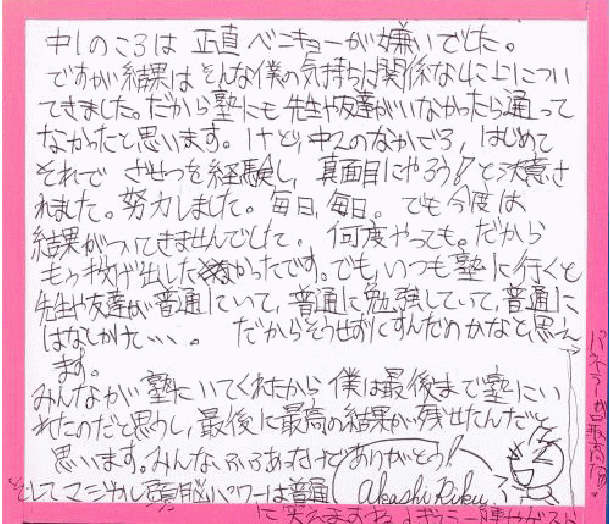 中1のころは 正直 ベンキョーが嫌いでした。
ですが結果はそんな僕の気持ちは関係なしに上についてきました。だから塾にも先生や友達がいなかったら通ってなかったと思います。けど、中2のなかごろ、はじめて
それで ざせつを経験し、真面目にやろう！と決意されました。努力しました。毎日、毎日。でも今度は
結果がついてきませんでした。何度やっても。だから
もう投げ出したかったです。でも、いつも塾に行くと
先生や友達が普通にいて、普通に勉強していて、普通に
はなしかけて…。 だからそうせずにすんだのかなと思えます。
みんなが塾にいてくれたから僕は最後まで塾にい
れたのだと思うし、最後に最高の結果が残せたんだと
思います。みんな ありがとう！
Akashi Riku
そしてマジカル頭脳パワーは普通
に笑えますね